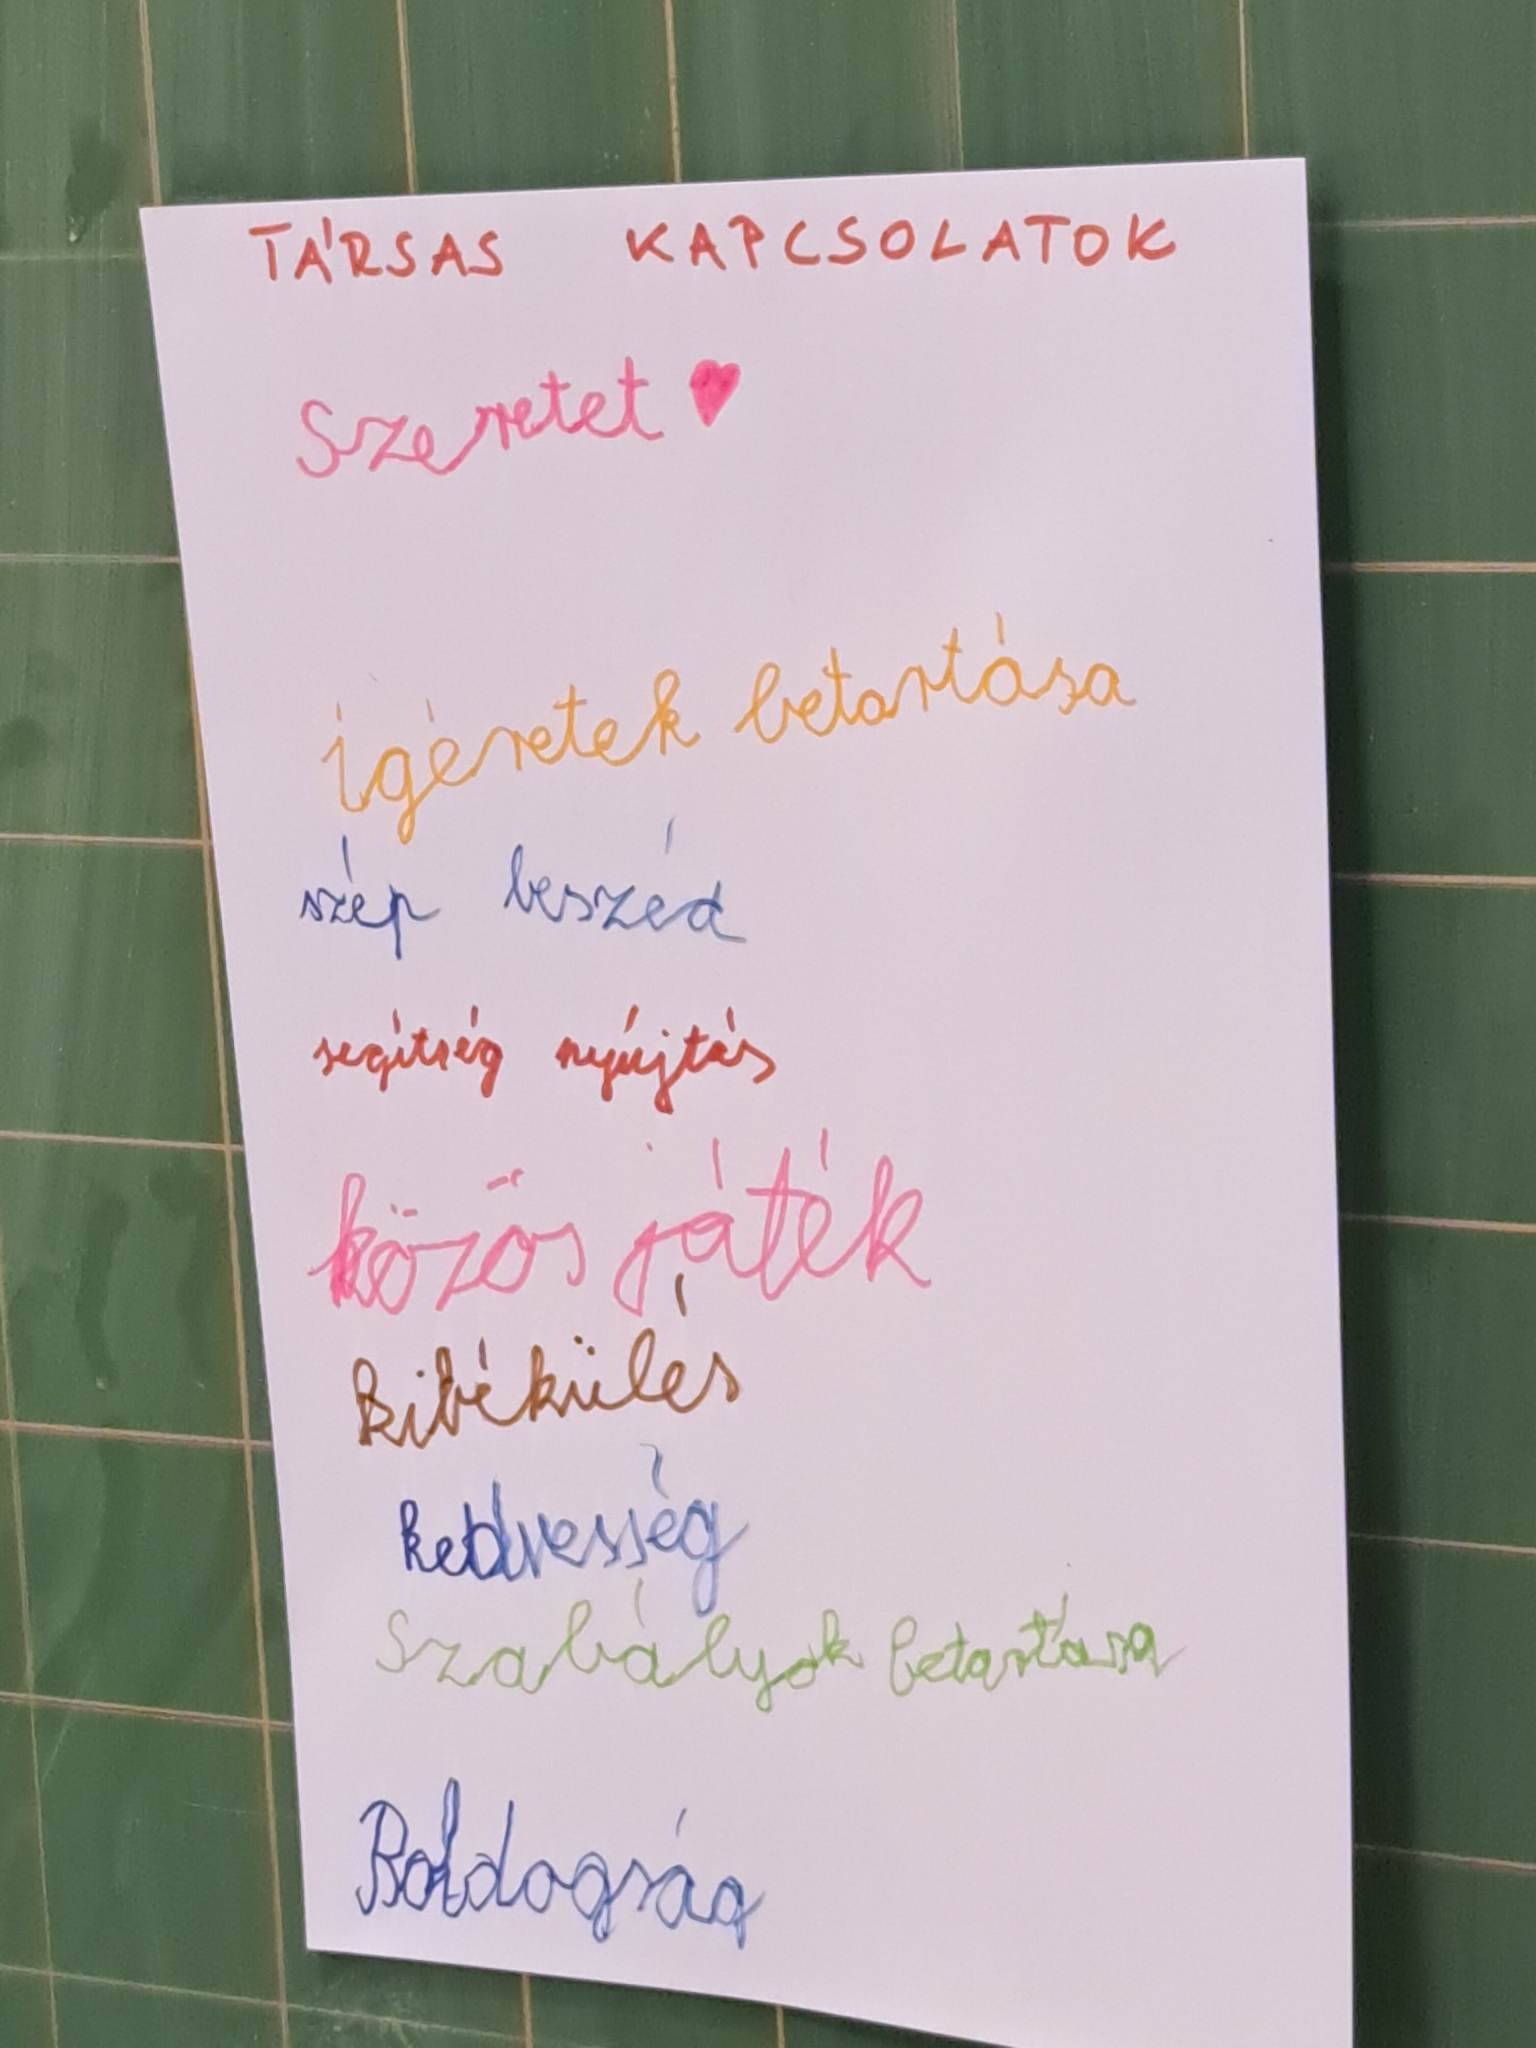 TÁRSAS KAPCSOLATOK
Szeretet ♥
ígéretek betartása
szép beszéd
segítség nyújtás
közös játék
Kibékülés
kedvesség
Szabályok betartása
Boldogság